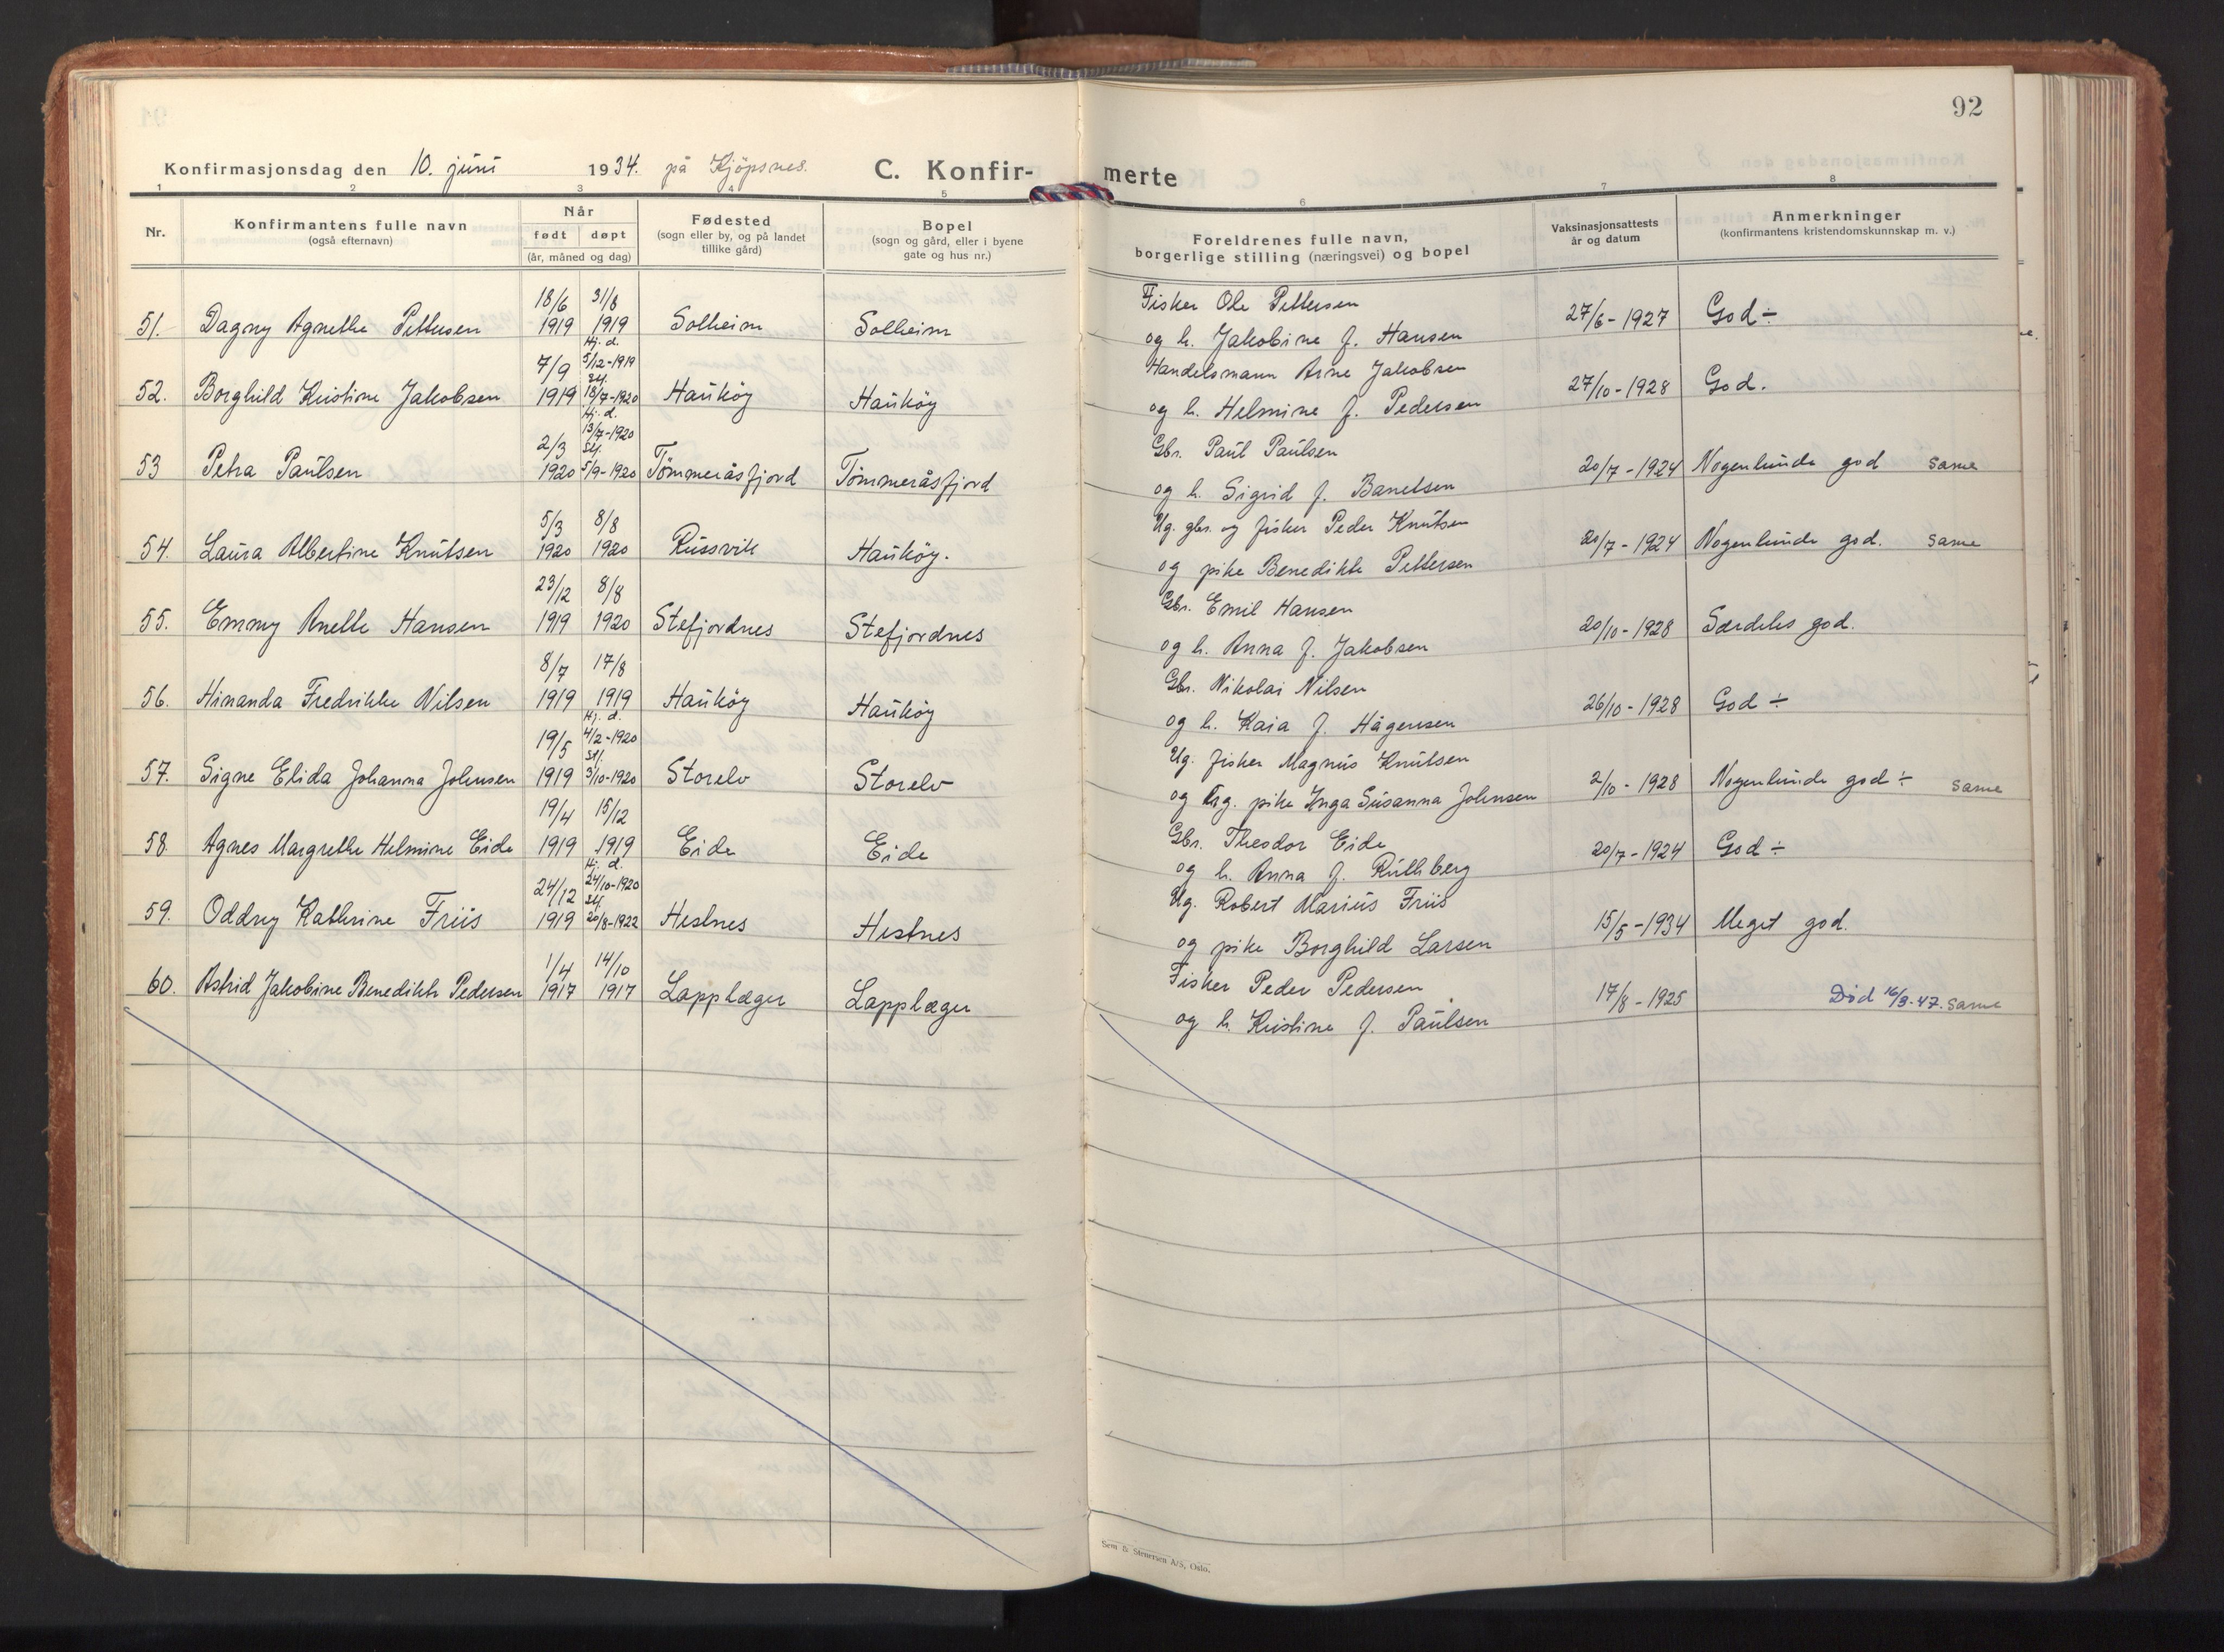 92
Konfirmasjonsdag den 10. juni 1934. på Kjöpsnes. C. Konfir-merte
1 2 3 4 5 6 7 8
Nr.
Konfirmantens fulle navn
(også efternavn)
Når
født døpt
(år, måned og dag)
Fødested
(sogn eller by, og på landet
tillike gård)
Bopel
(sogn og gård, eller i byene
gate og hus nr.)
Foreldrenes fulle navn,
borgerlige stilling (næringsvei) og bopel
Vaksinasjonsattests
år og datum
Anmerkninger
(konfirmantens kristendomskunnskap m. v.)
18/6 31/8 Fisker Ole Pettersen
51. Dagny Agnethe Pettersen 1919 1919 Solheim Solheim og h. Jakobine f. Hansen 27/6-1927 God÷
Hj. d.
7/9 5/12-1919 Handelsmann Arne Jakobsen
Stf.
52. Borghild Kristine Jakobsen 1919 18/7-1920 Hauköy Hauköy og h. Helmine f. Pedersen 27/10-1928 God.
Hj. d.
2/3 13/7-1920 Gbr. Paul Paulsen
Stf.
53 Petra Paulsen 1920 5/9-1920 Tömmeråsfjord Tömmeråsfjord og h. Sigrid f. Baretsen 20/7-1924 Nogenlunde god same
5/3 8/8 Ug. gbr. og fisker Peder Knutsen
54. Laura Albertine Knutsen 1920 1920 Russvik Hauköy. og pike Benedikte Pettersen 20/7-1924 Nogenlunde god. same
23/12 8/8 Gbr. Emil Hansen
55. Emmy Anette Hansen 1919 1920 Stefjordnes Stefjordnes og h. Anna f. Jakobsen 20/10-1928 Særdeles god.
8/7 17/8 Gbr. Nikolai Nilsen
56. Hinanda Fredrikke Nilsen 1919 1919 Hauköy Hauköy og h. Kaia f. Hågensen 26/10-1928 God ÷
Hj. d.
19/5 4/2-1920 Ug. fisker Magnus Knutsen
Stf.
57. Signe Elida Johanna Johnsen 1919 3/10-1920 Storelv Storelv og ug. pike Inga Susanna Johnsen 2/10-1928 Nogenlunde god ÷ same
19/4 15/12 Gbr. Theodor Eide
58. Agnes Margrethe Helmine Eide 1919 1919 Eide Eide og h. Anna f. Ruthberg 20/7-1924 God ÷
Hj. d.
24/12 24/10-1920 Ug. Robert Marius Friis
Stf.
59. Oddny Kathrine Friis 1919 20/8-1922 Hestnes Hestnes og pike Borghild Larsen 15/5-1934 Meget god.
1/4 14/10 Fisker Peder Pedersen
60. Astrid Jakobine Benedikte Pedersen 1917 1917 Lapplæger Lapplæger og h. Kristine f. Paulsen 17/8-1925 Död 16/3.47. same
Sem & Stenersen A/S, Oslo.